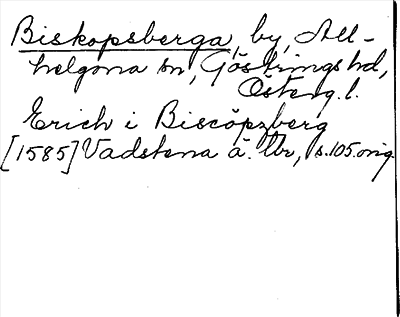 Biskopsberga, by, All-
helgona sn, Göstrings hd,
Österg. l.
Erich i Biscöpzberg
[1585] Vadstena ä. tbr, s. 105. orig.